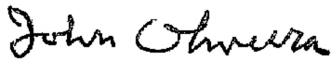 John Oliveira